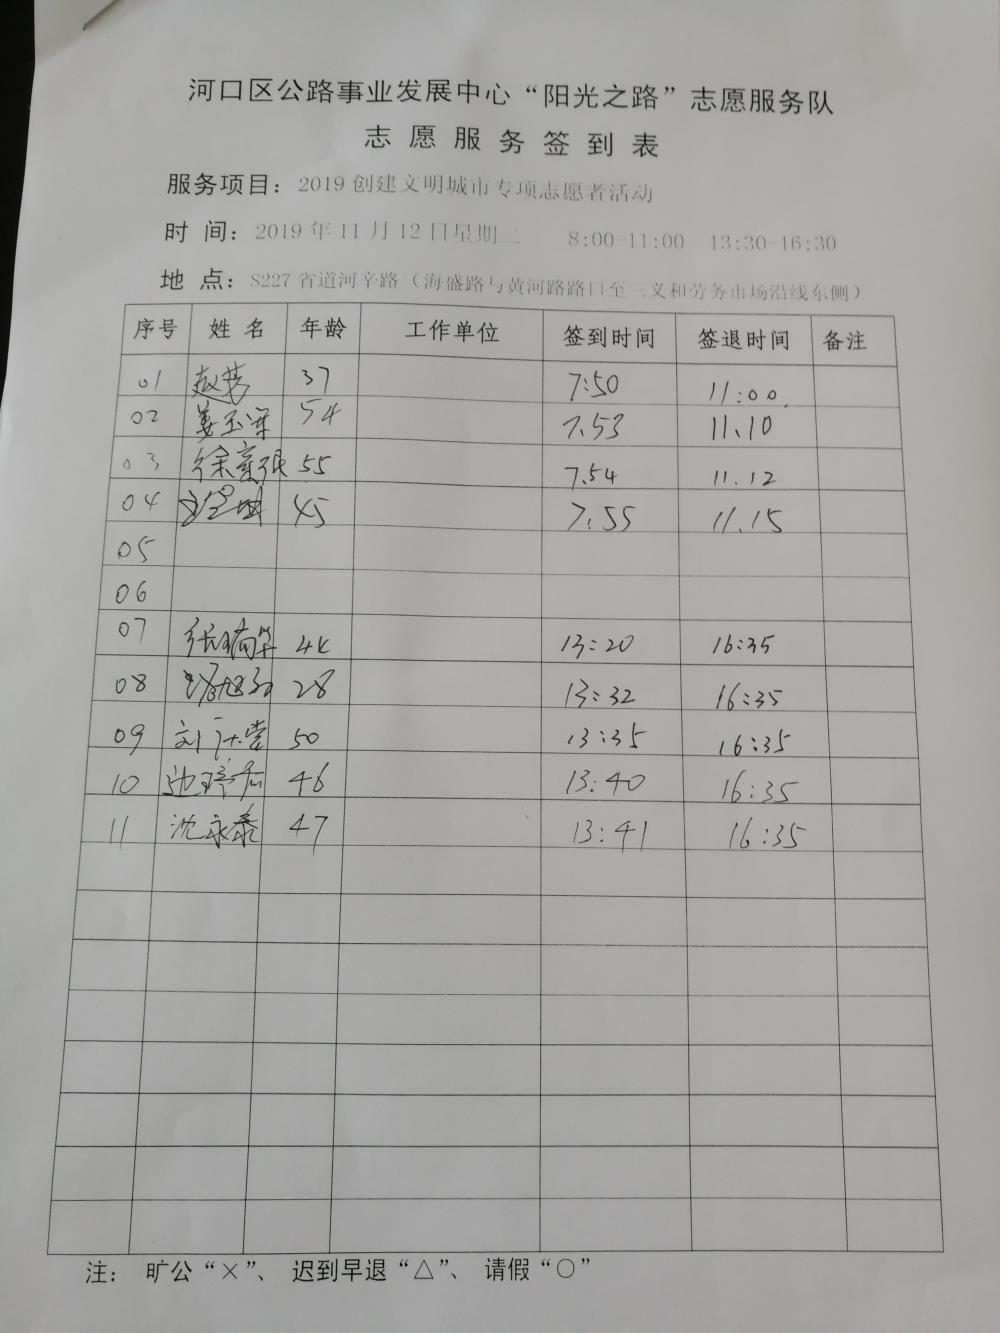 河口区公路事业发展中心“阳光之路”志愿服务队
志愿服务签到表
服务项目：2019创建文明城市专项志愿者活动
时 间：2019年11月12日星期二 8:00-11:00 13:30-16:30
地 点：S227省道河辛路（海盛路与黄河路路口至三义和劳务市场沿线东侧）
序号 姓名 年龄 工作单位 签到时间 签退时间 备注
01 赵芳 37 7:50 11:00
02 姜玉 54 7.53 11.10
03 徐 55 7.54 11.12
04 45 7.55 11.15
05
06
07 张 44 13:20 16:35
08 28 13:32 16:35
09 刘 堂 50 13:35 16:35
10 边 46 13:40 16:35
11 沈永泰 47 13:41 16:35
注： 旷公“×”、 迟到早退“△”、 请假“○”